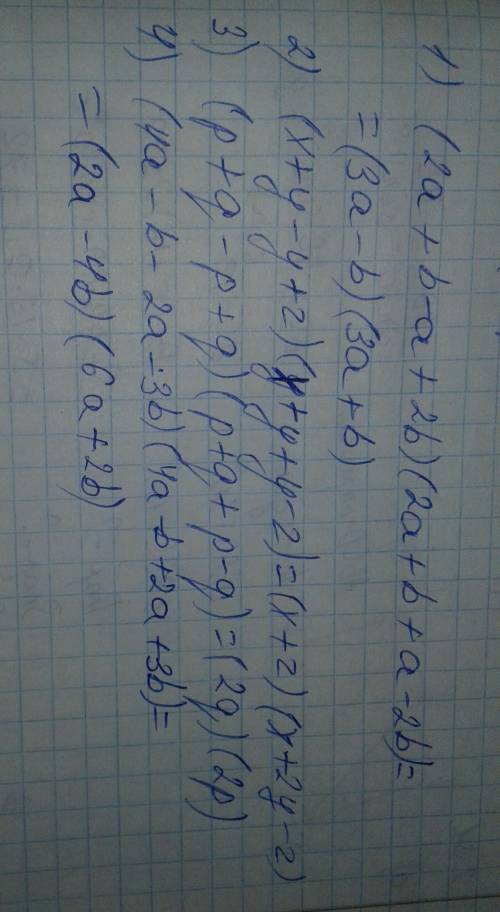 1) (2a + b - a + 2b)(2a + b + a - 2b) =
= (3a - b)(3a + b)
2) (x + y - y + z)(x + y + y - z) = (x + z)(x + 2y - z)
3) (p + q - p + q)(p + q + p - q) = (2q)(2p)
4) (4a - b - 2a - 3b)(4a - b + 2a + 3b) =
= (2a - 4b)(6a + 2b)